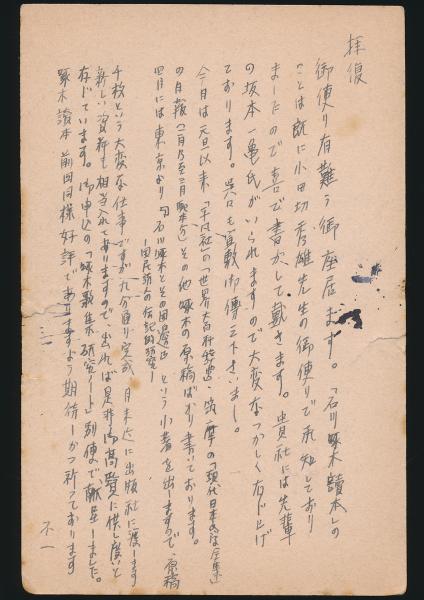 拝復
御便り有難う御座居ます。「石川啄木讀本」の
ことは既に小田切秀雄先生の御便りで承知しており
ましたので喜んで書かして戴きます。貴社には先輩
の坂本一亀氏がいられますので大変なつかしく存じ上げ
ております。呉々も宜敷御傳え下さいまし。
今月は元旦以来「平凡社」の「世界大百科辞典」、筑摩の「現代日本文学全集」
の月報(一月乃至二月啄木分)その他啄木の原稿ばかり書いております。
四月には東京より「石川啄木とその周邊」という小著を出しますので、原稿
―国民詩人の伝記的研究―
千枚という大変な仕事ですが九分通り完成、月末迄に出版社に渡します
新しい資料も相当入れてありますので、出れば是非御高覧に供し度いと
存じています。御申込の「啄木歌集研究ノート」別便で献呈しました。
啄木讀本 前回同様好評でありますよう期待しかつ祈っております
不一